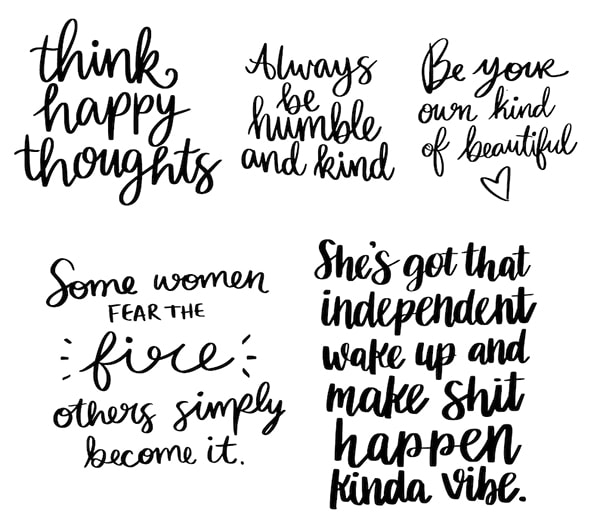 think
happy
thoughts
Always
be
humble
and kind
Be your
own kind
of beautiful
Some women
FEAR THE
fire
others simply
become it.
She's got that
independent
wake up and
make shit
happen
kinda vibe.